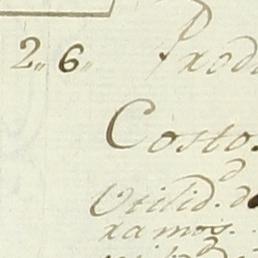 2,, 6,,
Prod
Costo.
Utilid.d d
xamos.